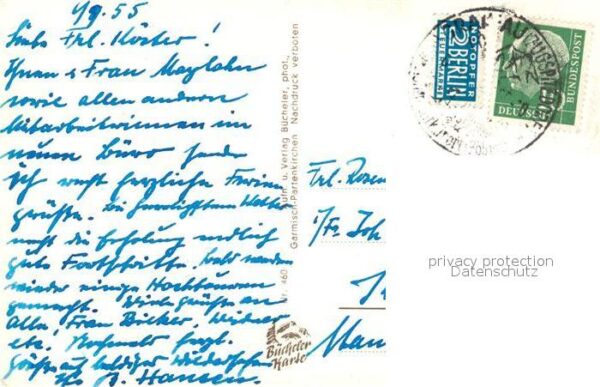 4/9.55
Liebe Frl. Köster!
Ihnen & Frau Maylahn
sowie allen andern
Mitarbeiterinnen im
neuen Büro sende
ich recht herzliche Ferien
grüße. Bei sonnigstem Wetter
macht die Erholung endlich
gute Fortschritte. Bald werden
wieder einige Hochtouren
gemacht. Viele Grüße an
alle, Frau Bicker,
etc.
Grüße auf baldiges Wiedersehen
Ihr Hansen.
u. Verlag Bücheler, phot.,
Garmisch-Partenkirchen Nachdruck verboten
Nr. 460
Bücheler
Karte
NOTOPFER
2 BERLIN
STEUERMARKE
DEUTSCHE
BUNDESPOST
Frl. Rosen
i/Fr. Joh
Man
privacy protection
Datenschutz